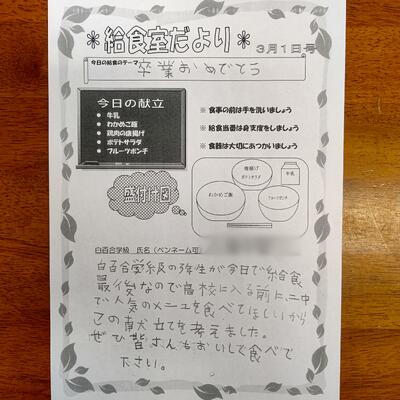 ＊給食室だより＊
3月1日号
今日の給食のテーマ
卒業おめでとう
今日の献立
● 牛乳
● わかめご飯
● 鶏肉の唐揚げ
● ポテトサラダ
● フルーツポンチ
※ 食事の前は手を洗いましょう
※ 給食当番は身支度をしましょう
※ 食器は大切にあつかいましょう
盛付け図
唐揚げ
ポテトサラダ
牛乳
わかめご飯
フルーツポンチ
白百合学級 氏名（ペンネーム可）
白百合学級の3年生が今日で給食
最後なので高校に入る前に、二中
で人気のメニュを食べてほしいから
この献立を考えました。
ぜひ皆さんもおいしく食べて
下さい。